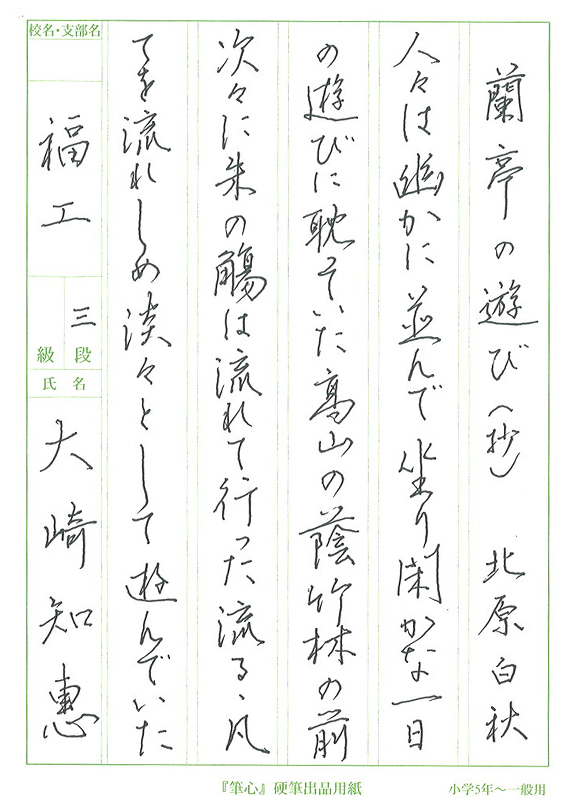 蘭亭の遊び(抄) 北原白秋
人々は幽かに並んで坐り閑かな一日
の遊びに耽っていた高山の蔭竹林の前
次々に朱の觴は流れて行った流るゝ凡
てを流れしめ淡々として遊んでいた
校名・支部名
福工
三段
級
氏名
大崎知恵
『筆心』硬筆出品用紙
小学5年〜一般用